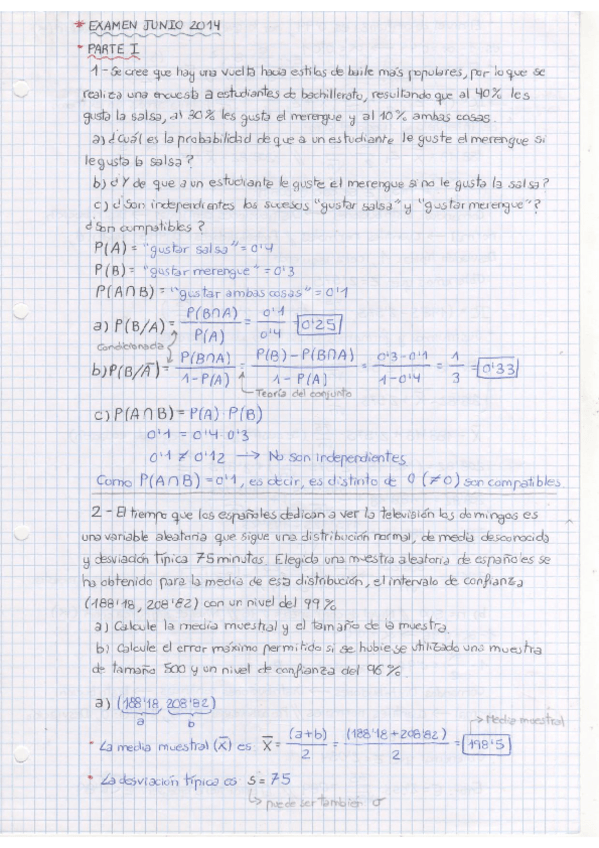 * EXAMEN JUNIO 2014
* PARTE I
1 - Se cree que hay una vuelta hacia estilos de baile más populares, por lo que se
realiza una encuesta a estudiantes de bachillerato, resultando que al 40% les
gusta la salsa, al 30% les gusta el merengue y al 10% ambas cosas.
a) ¿Cuál es la probabilidad de que a un estudiante le guste el merengue si
le gusta la salsa?
b) ¿Y de que a un estudiante le guste el merengue si no le gusta la salsa?
c) ¿Son independientes los sucesos "gustar salsa" y "gustar merengue"?
¿Son compatibles?
P(A) = "gustar salsa" = 0'4
P(B) = "gustar merengue" = 0'3
P(A∩B) = "gustar ambas cosas" = 0'1
a) P(B/A) = P(B∩A) / P(A) = 0'1 / 0'4 = 0'25
Condicionada
b) P(B/A̅) = P(B∩A̅) / 1-P(A) = P(B)-P(B∩A) / 1-P(A) = 0'3-0'1 / 1-0'4 = 1/3 = 0'33
Teoría del conjunto
c) P(A∩B) = P(A)·P(B)
0'1 = 0'4·0'3
0'1 ≠ 0'12 → No son independientes
Como P(A∩B) = 0'1, es decir, es distinto de 0 (≠0) son compatibles
2 - El tiempo que los españoles dedican a ver la televisión los domingos es
una variable aleatoria que sigue una distribución normal, de media desconocida
y desviación típica 75 minutos. Elegida una muestra aleatoria de españoles se
ha obtenido para la media de esa distribución, el intervalo de confianza
(188'18, 208'82) con un nivel del 99%
a) Calcule la media muestral y el tamaño de la muestra.
b) Calcule el error máximo permitido si se hubiese utilizado una muestra
de tamaño 500 y un nivel de confianza del 96%.
a) (188'18, 208'82)
a b
→ Media muestral
* La media muestral (X̅) es X̅ = (a+b) / 2 = (188'18+208'82) / 2 = 198'5
* La desviación típica es s = 75
↳ puede ser también σ